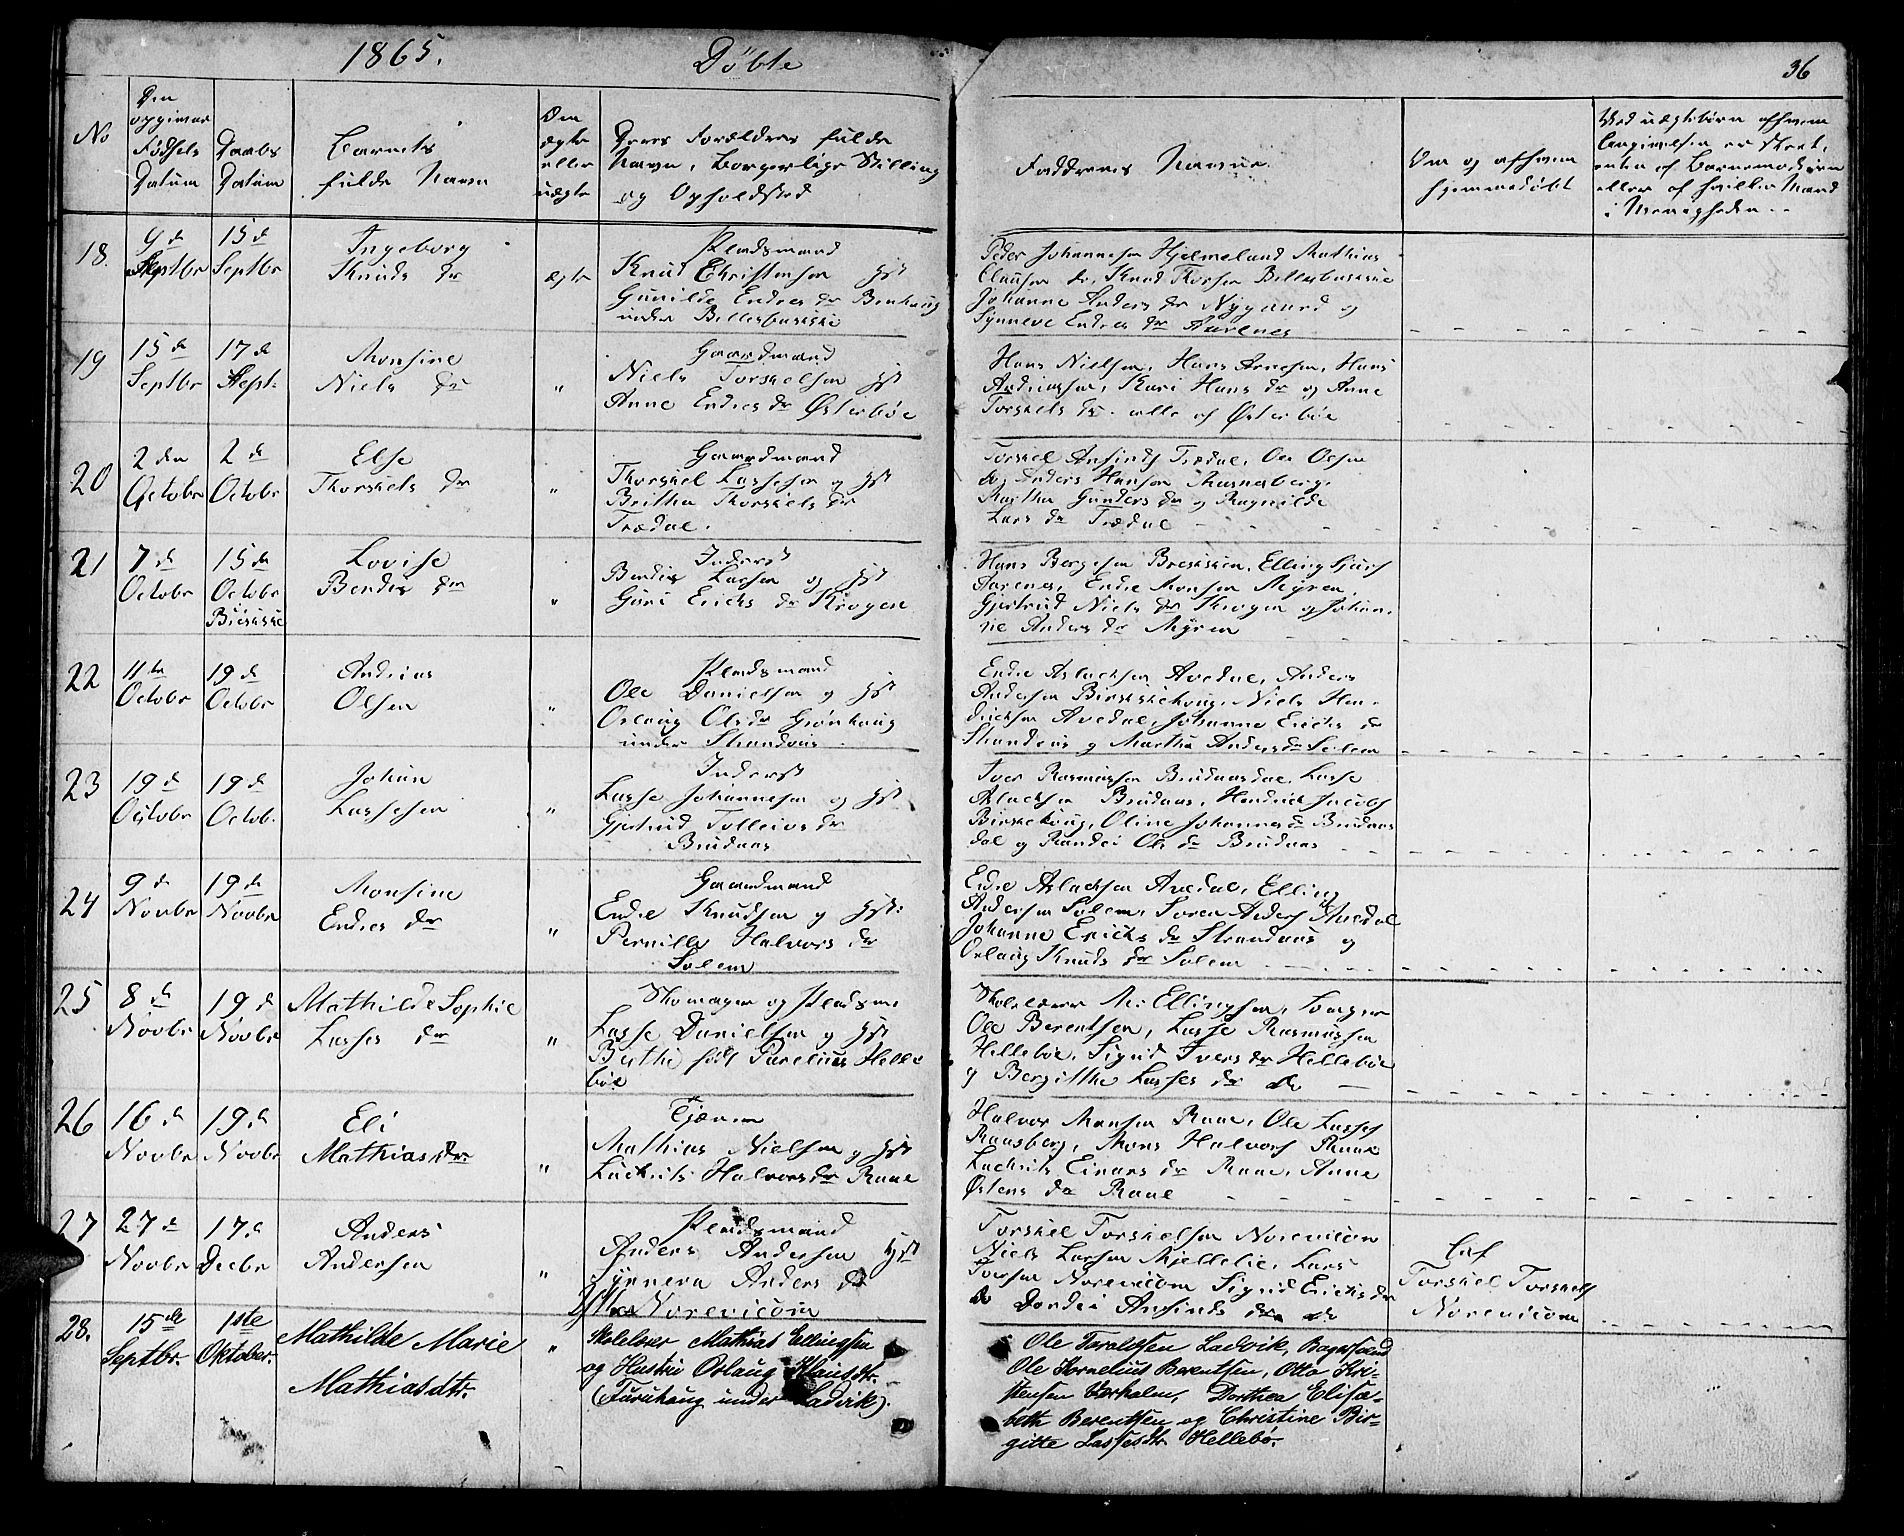 1865. Döbte 36
No
Den opgivne Fødsels Datum
Daabs Datum
Barnets fulde Navn
Om ægte eller uægte
Deres Forældres fulde
Navn, Borgerlige Stilling
og Opholdsted
Faddernes Navne.
Om og afhvem
hjemmedöbt
Ved uægtebörn afhvem
Angivelsen er skeet,
enten af Barnemoderen
eller af hvilken Mand
i Menigheden
18. 9 d Septbr 15 d Septbr
Ingeborg
Knuds dr
ægte
Pladsmand
Knud Christensen og Hst
Gunilde Endres dr
under Birkebusskie
Peder Johannesen Hjelmeland Mathias
Clausen do, Knud Thorsen
Johanne Anders dr Nygaard og
Synneve Endres dr Aarenes
19 15 d Septbr 17 d Sept.
Monsine
Niels dr
"
Gaardmand
Niels Torkelsen Hst
Anne Endres dr Østerböe
Hans Nielsen, Hans Arnesen, Hans
Andreassen, Kari Hans dr og Anne
Torkels dr. alle af Østerböe
20 2 den Octobr 2 d Octobr
Else
Thorkels dr
"
Gaardmand
Thorkel Lassesen og Hst
Britha Thorkels dr
Trædal.
Torkel Ansinds Trædal, Ole Olsen
do, Anders Hansen
Martha Gunders dr og Ragnilde
Lars dr Trædal
21 7 d Octobr 15 d Octobr
Lovise
Bendix dr
"
Inderst
Bendix Lassen og Hst
Guri Erichs dr Krogen
Hans Bergesen Brekkien, Elling
Aarenes, Endre Monsen Myren
Gjertrud Niels dr Krogen og Johan-
ne Anders dr Myren
22 11 te Octobr 19 d Octobr
Andreas
Olsen
"
Pladsmand
Ole Danielsen og Hst
Oslaug Ols dr Grönhaug
under Strandaas
Endre Aslachsen Avedal, Anders
Andersen Birkekoug, Niels Hen-
drichsen Avedal, Johanne Erichs dr
Strandaas og Martha Anders dr Solem
23 19 d Octobr 19 d Octob.
Johan
Lassesen
"
Inderst
Lasse Johannesen og Hst
Gjertrud Tolleivs dr
Brudaas
Iver Rasmussen Brudaasdal, Lasse
Aslachsen Brudaas, Hendrich Jacobs
Birkehoug, Oline Johannes dr Brudaas
dal og Randei Ols dr Brudaas
24 9 d Novbr 19 d Novbr
Monsine
Endres dr
"
Gaardmand
Endre Knudsen og Hst.
Pernille Halvors dr
Solem
Endre Aslachsen Avedal, Elling
Andersen Solem, Soren Anders Avedal
Johanne Erichs dr Strandaas og
Oslaug Knuds dr Solem
25 8 d Novbr 19 d Novbr
Mathilde Sophie
Lasses dr
"
Skomager og Pladsm.
Lasse Danielsen og Hst
Berthe födt Parelius Helle
böe
Skolelærer M. Ellingsen,
Ole Berentsen, Lasse Rasmussen
Helleböe, Sigrid Ivers dr Helleböe
og Bergitthe Lasses dr do
26 16 d Novbr 19 d Novbr
Eli
Mathias dr
"
Tjener
Mathias Nielsen og Hst
Lackrits Halvors dr Raae
Halvor Monsen Raae, Ole Lasses
Raasberg, Mons Halvors Raae
Lackrits Einars dr Raae, Anne
Østens dr Raae
27 27 d Novbr 17 d Decbr
Anders
Andersen
"
Pladsmand
Anders Andersen Hst
Synneva Anders dr
Norevicom
Torkel Torkelsen Norevicom
Niels Larsen Mjellelie, Lars
Iversen Norevicom Sigrid Erichs dr
do Dordei Ansinds dr do
af
Torkel Torkels
Norevicom
28. 15de Septbr. 1ste Oktober.
Mathilde Marie
Mathiasdtr.
"
Skolelærer Mathias Ellingsen
og Hustru Oslaug Klausdtr.
(Furuhaug under Ladvik).
Ole Toraldsen Ladvik, Bagersvend
Ole Kornelius Berentsen, Otto Kri-
stensen Lerholm, Dorthea Elisa-
beth Berentsen og Christine Bir-
gitte Lassesdtr. Hellebø.